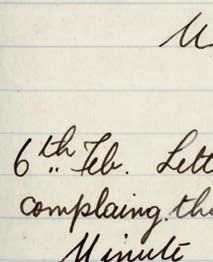 6th Feb. Lett
complaing. th
Minute